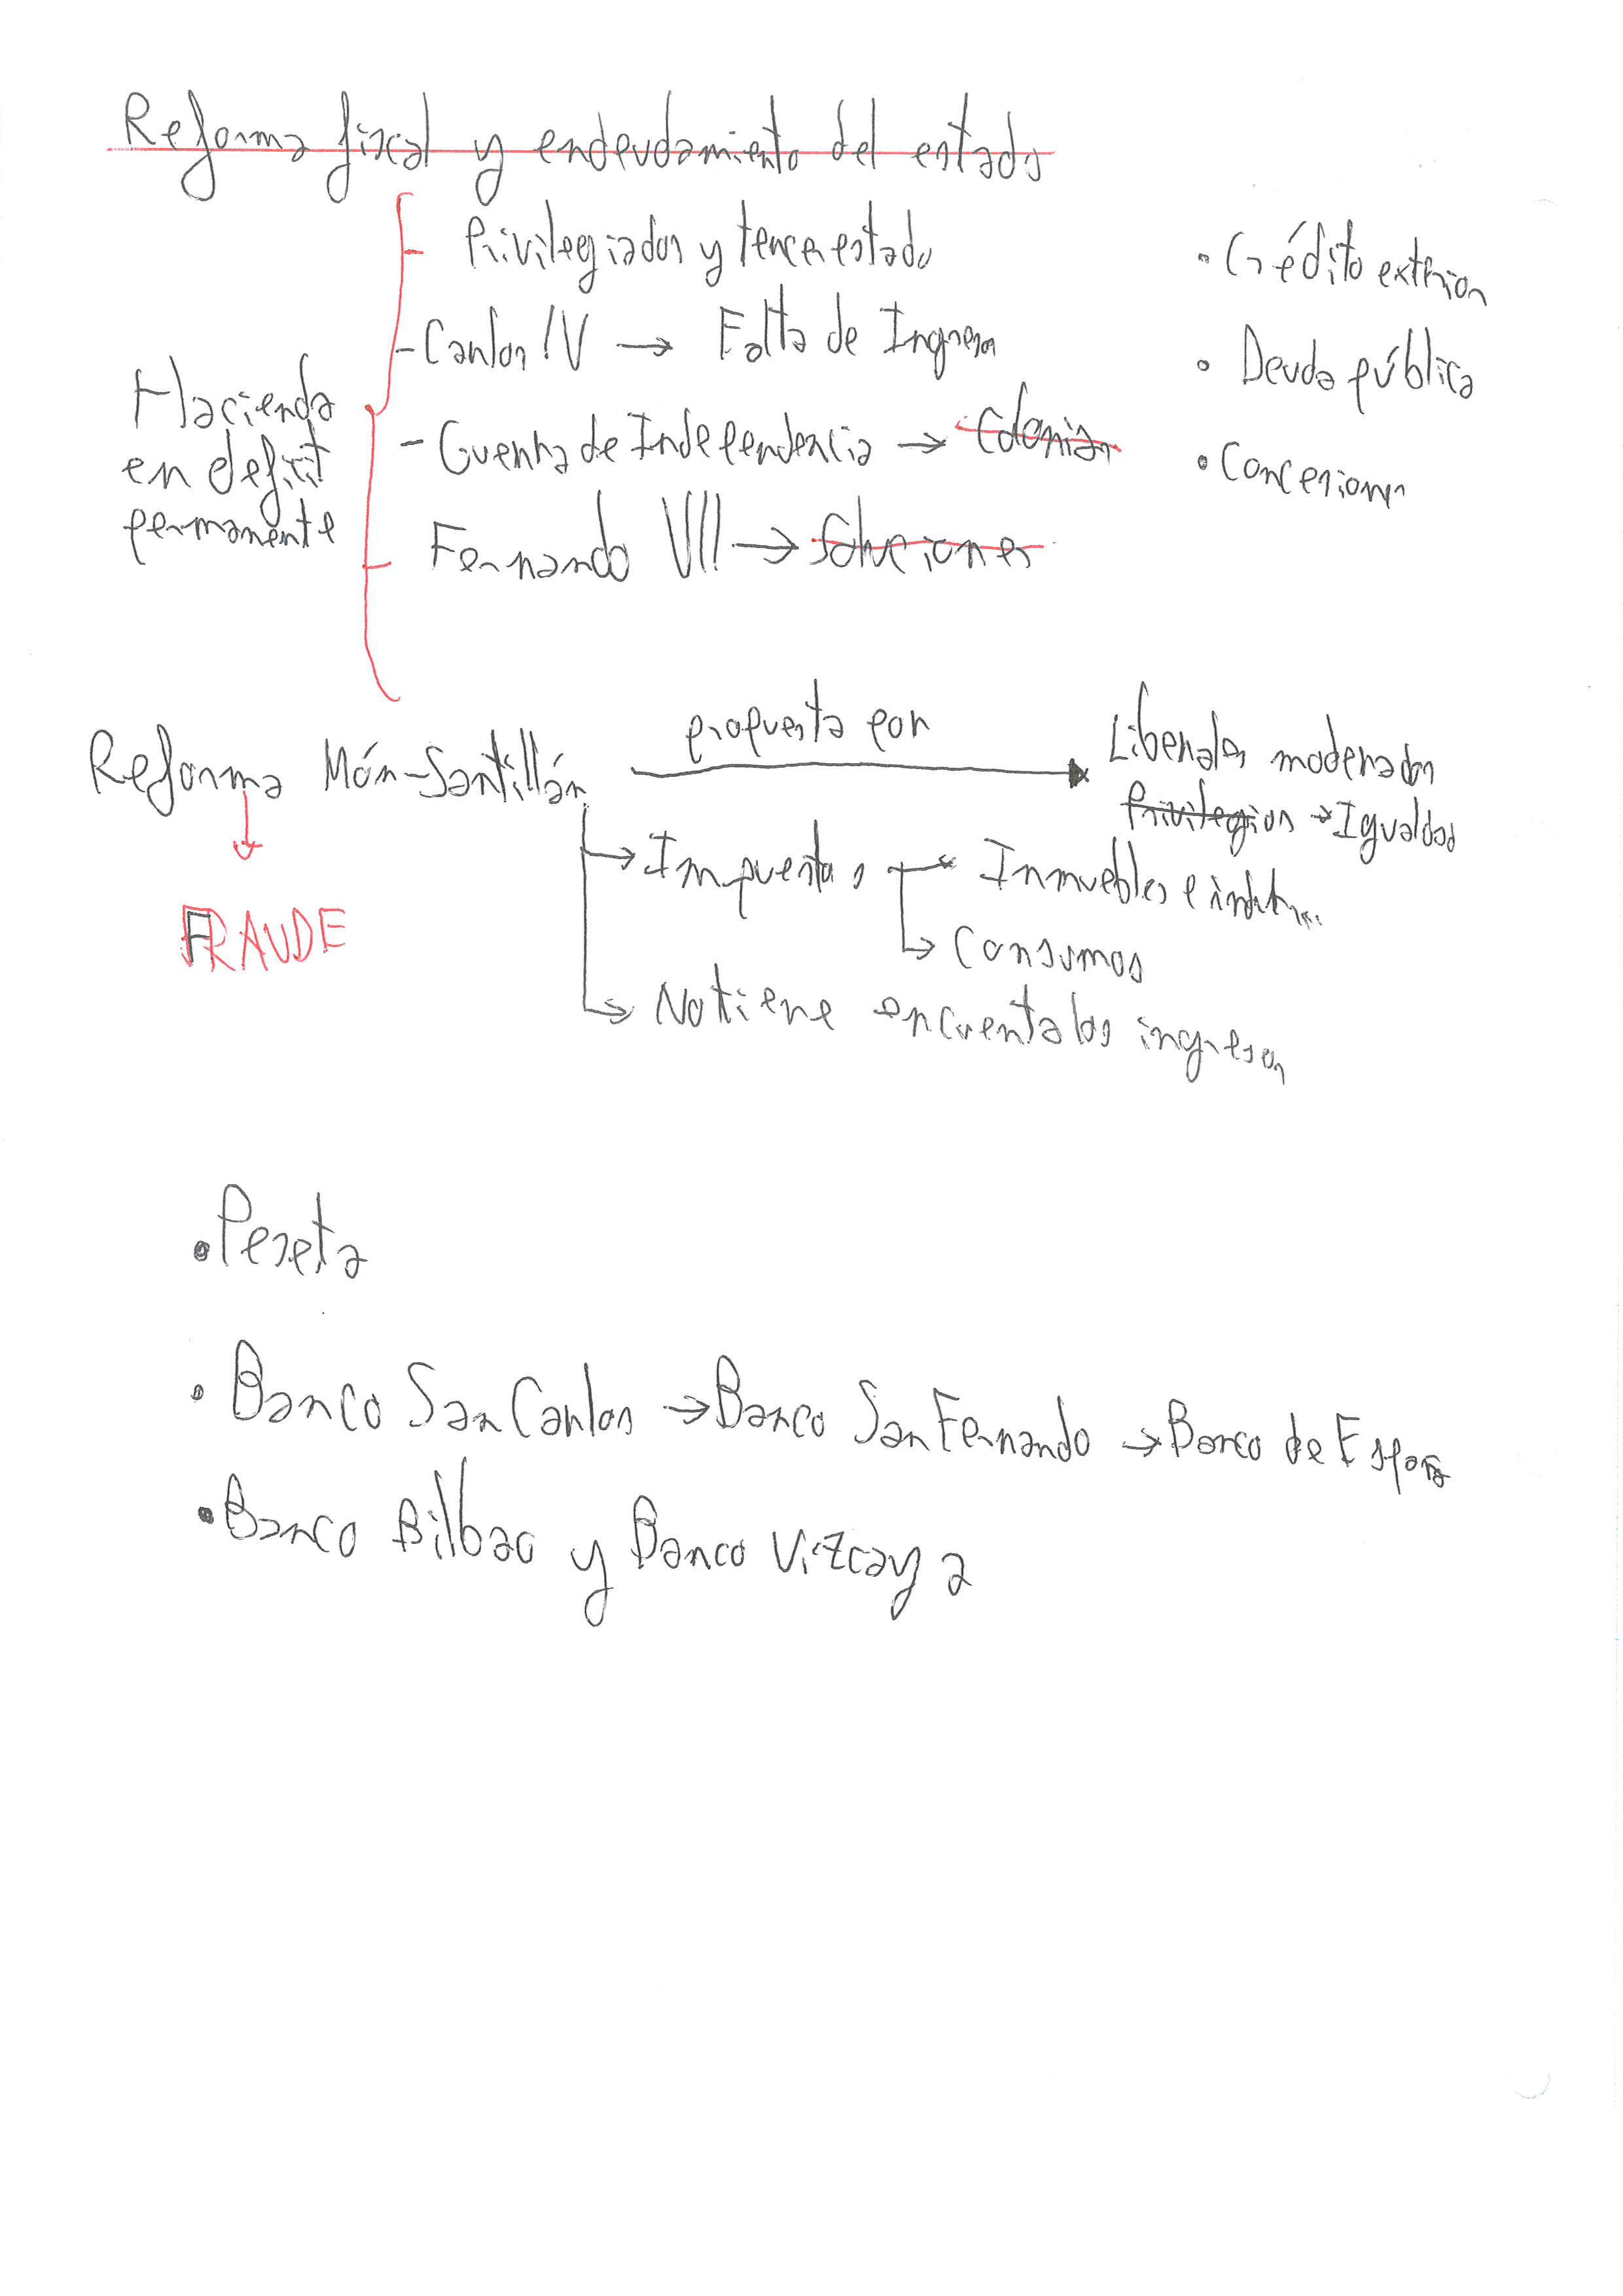 Reforma fiscal y endeudamiento del estado
Privilegiados y tercer estado
- Carlos IV → Falta de Ingresos
- Guerra de Independencia → Colonias
Fernando VII → Soluciones
Hacienda
en deficit
permanente
• Crédito exterior
• Deuda pública
• Concesiones
Reforma Món-Santillán
propuesta por
Liberales moderados
Privilegios → Igualdad
FRAUDE
→ Impuestos
Inmuebles e
→ Consumos
→ No tiene en cuenta los ingresos
• Peseta
• Banco San Carlos → Banco San Fernando → Banco de España
• Banco Bilbao y Banco Vizcaya